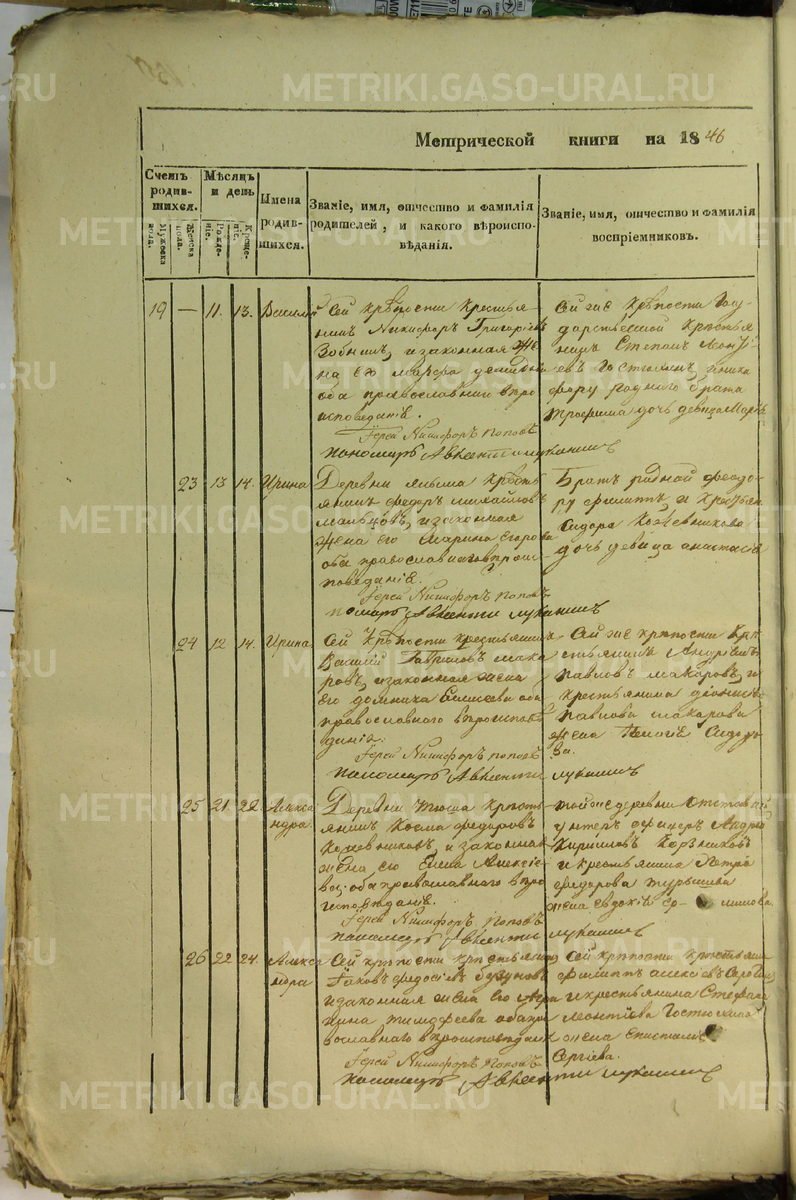 METRIKI.GASO-URAL.RU
Метрической книги на 1846
Счетъ родив-шихся.
Мѣсяцъ и день
Имена родив-шихся.
Званіе, имя, отчество и фамилія родителей, и какого вѣроиспо-вѣданія.
Званіе, имя, отчество и фамилія воспріемниковъ.
Мужеска пола.
Женска пола.
Рожде-ніе.
Креще-ніе.
19 — 11. 13. Василий
Сей крѣпости Крестья-
нинъ Никифоръ Григорьевъ
Зобнинъ, и законная Же-
на Его Марфа
оба православнаго вѣро
исповеданія.
Іерей Никифоръ Поповъ
пономарь Авксентий Лукашинъ
Сей же Крѣпости Госу-
дарственной крестья
нинъ Степанъ Леонтi-
евъ Гостюхинъ, и Ники
фору роднаго брата
Трофима дочь девица Марѳа
23 13 14. Ирина
Деревни Кресть
янинъ федоръ михайловъ
мальцовъ, и законная
Жена его Марина Егорова
оба православнаго вѣроис-
поведанія.
Іерей Никифоръ Поповъ
пономарь Авксентий Лукашинъ
Братъ родной феодо-
ру филиппъ, и Крестьян
Сидора Кожевникова
дочь девица анастасія
24 12 14. Ирина
Сей Крѣпости крестьянинъ
Василий Гавриловъ мака
ровъ, и законная жена
его домника Елисеева оба
православнаго вѣроиспов
данія.
Іерей Никифоръ поповъ
пономарь Авксентий Лукашинъ
Сей же крѣпости Кре
стьянинъ Андрей
павловъ макаровъ, и
крестьянина дионисія
павлова макарова
жена Пелагіе Сидоро
ва.
25 21 22. Алекса
ндра.
Деревни Тюша Кресть
янинъ Косма федоровъ
Кожевниковъ, и законная
жена его Елена Алексѣе
ва, оба православнаго вѣро
исповѣданіе.
Іерей Никифоръ Поповъ
пономарь Авксентий Лукашинъ
той же деревни отставной
унтеръ офицеръ Андрей
Кириловъ
и крестьянина Петра
федорова турышева
жена евдокіе лилова.
26 22 24. Алекса
ндра
Сей крѣпости крестьянинъ
Іаковъ федосѣевъ бузуновъ
и законная жена его Агри
пина тимофеева оба пра
вославнаго вѣроисповѣданія
Іерей Никифоръ Поповъ
пономарь Авксентий Лукашинъ
Сей крѣпости крестьяни
филиппъ алексѣевъ
и крестьянина Стефана
леонтіева Гостюхина
жена
Сергіева.